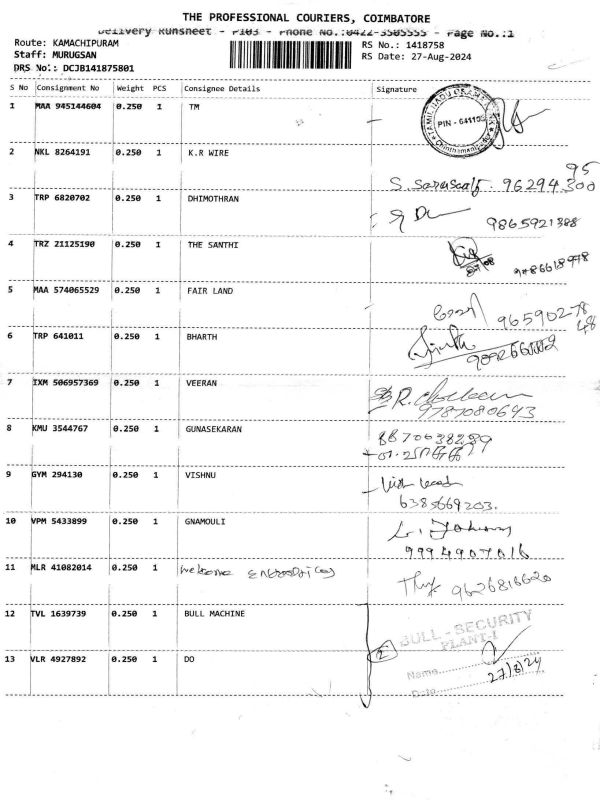 THE PROFESSIONAL COURIERS, COIMBATORE
Delivery Runsheet - P103 - Phone No.:0422-3505555 - Page No.:1
Route: KAMACHIPURAM
RS No.: 1418758
Staff: MURUGSAN
RS Date: 27-Aug-2024
DRS No.: DCJB141875801
S No Consignment No Weight PCS Consignee Details Signature
1 MAA 945144604 0.250 1 TM
PIN - 641103
2 NKL 8264191 0.250 1 K.R WIRE
3 TRP 6820702 0.250 1 DHIMOTHRAN
4 TRZ 21125190 0.250 1 THE SANTHI
5 MAA 574065529 0.250 1 FAIR LAND
6 TRP 641011 0.250 1 BHARTH
7 IXM 506957369 0.250 1 VEERAN
9787080643
8 KMU 3544767 0.250 1 GUNASEKARAN
8870638289
9 GYM 294130 0.250 1 VISHNU
6385669203.
10 VPM 5433899 0.250 1 GNAMOULI
9994907016
11 MLR 41082014 0.250 1 Welcome
9626816620
12 TVL 1639739 0.250 1 BULL MACHINE
BULL - SECURITY
PLANT-I
13 VLR 4927892 0.250 1 DO
2
Name
27/8/24
Date